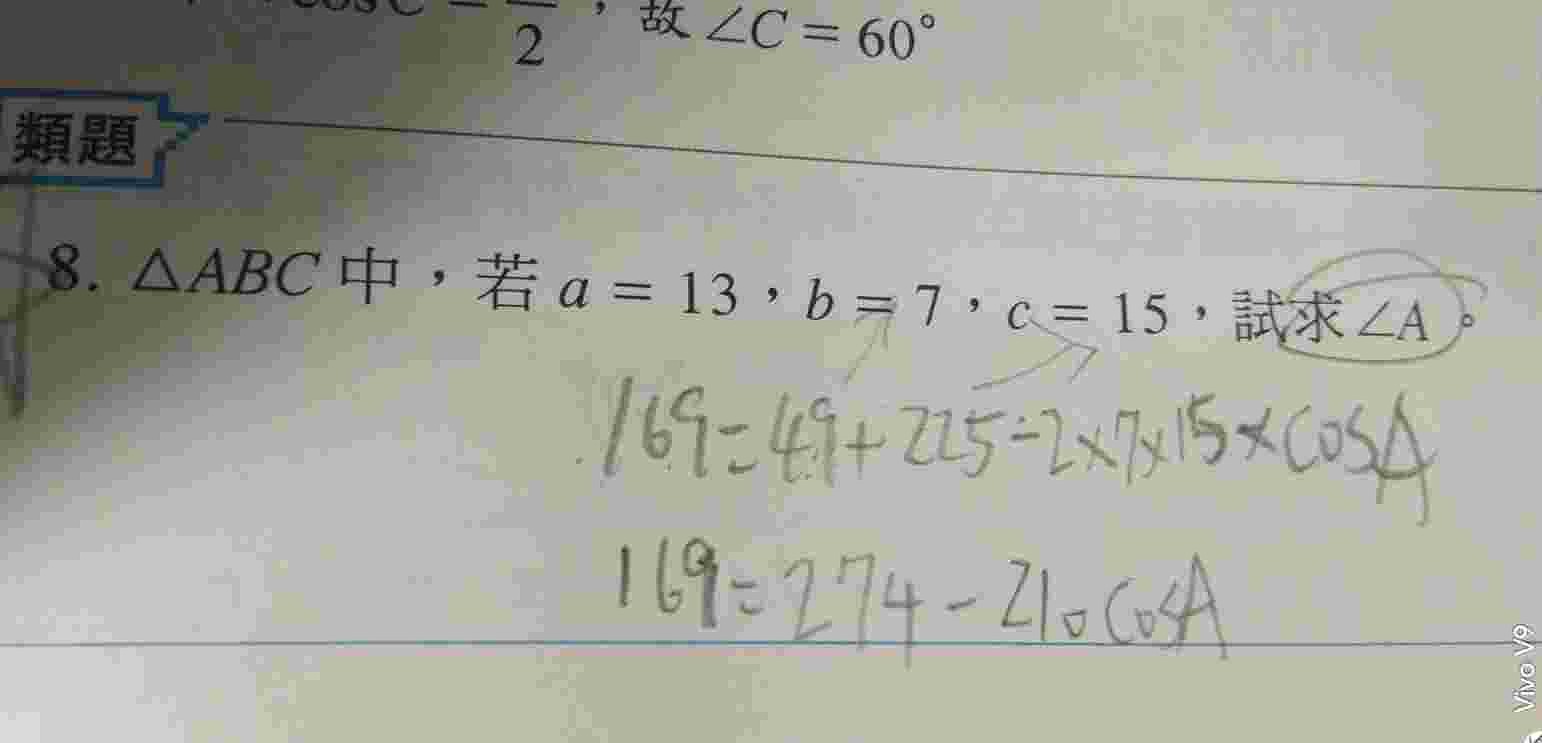 cosC = 2，故 ∠C = 60°
類題
8. △ABC 中，若 a = 13，b = 7，c = 15，試求 ∠A。
169=49+225-2×7×15×cosA
169=274-210cosA
Vivo V9